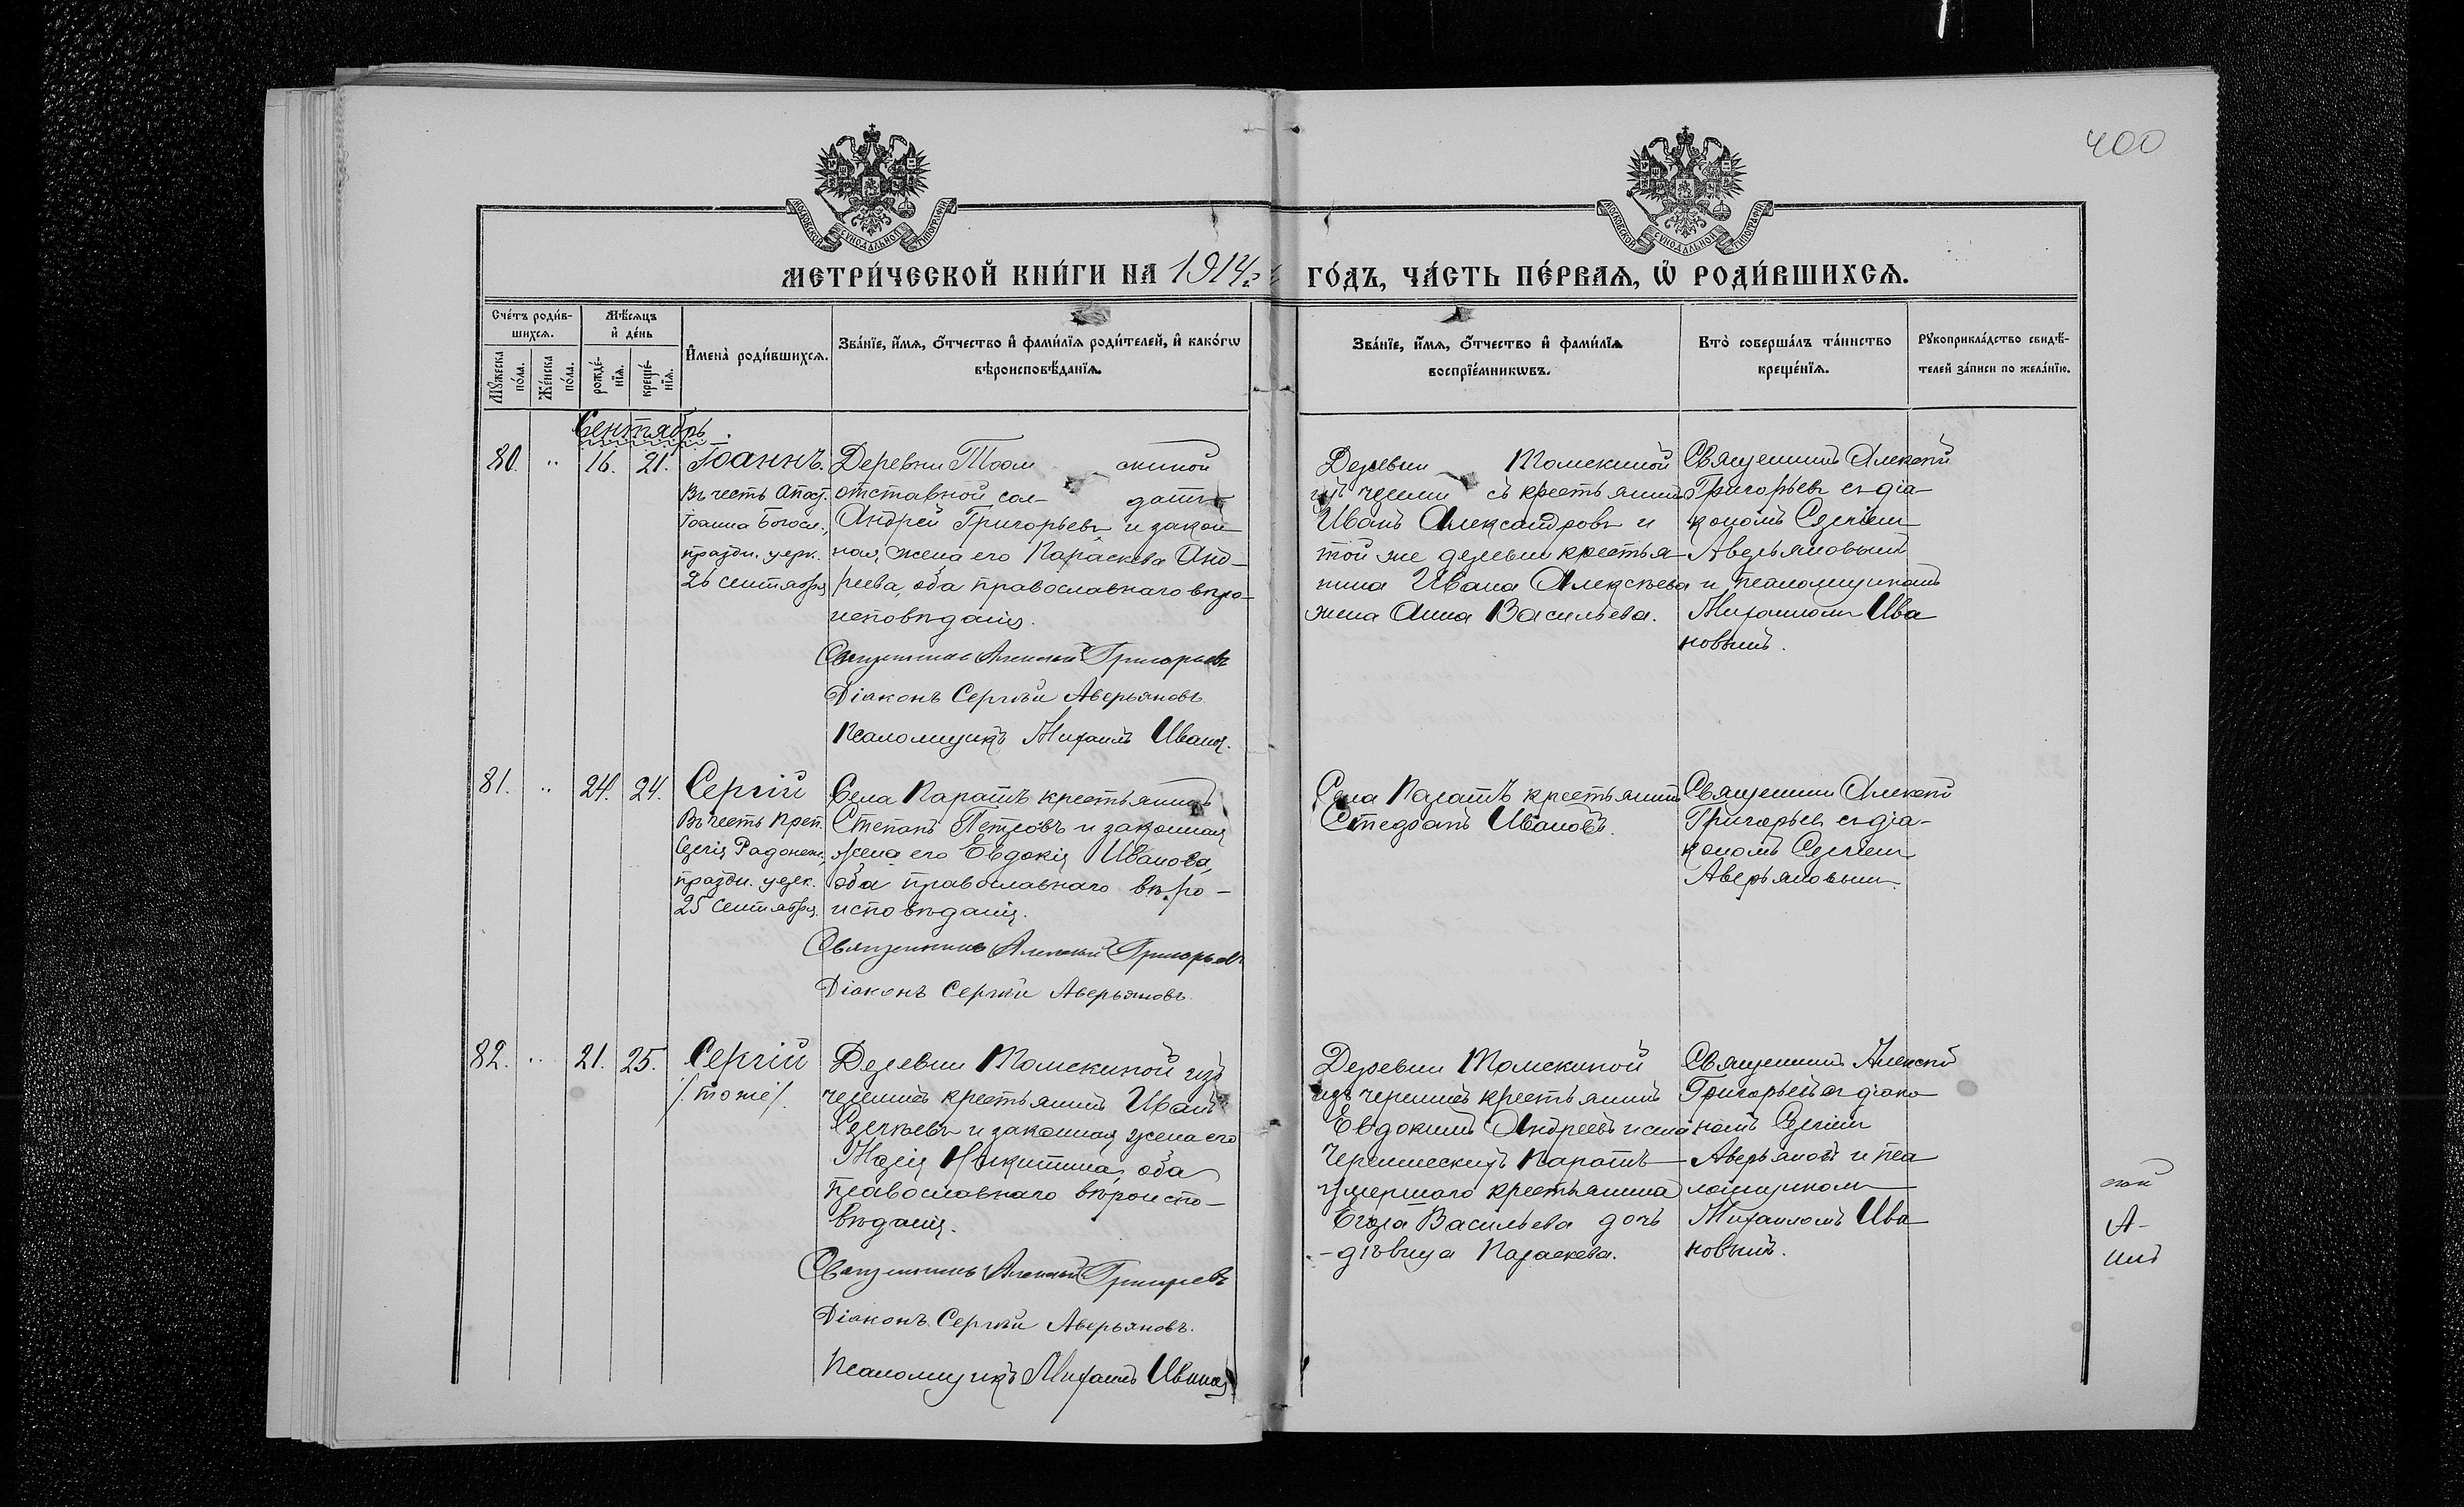 400
МОСКОВСКОЙ СУНОДАЛЬНОЙ ТИПОГРАФІИ
МОСКОВСКОЙ СУНОДАЛЬНОЙ ТИПОГРАФІИ
МЕТРИ́ЧЕСКОЙ КНИ́ГИ НА 1914 г. ГО́ДЪ, ЧА́СТЬ ПЕ́РВАѦ, Ѡ҆ РОДИ́ВШИХСѦ.
Сче́тъ роди́в-
шихсѧ.
Мꙋ́жеска
по́ла.
Же́нска
по́ла.
Мѣ́сѧцъ
и҆ де́нь
рожде́-
нїѧ.
креще́-
нїѧ.
И҆мена̀ роди́вшихсѧ.
Зва́нїе, и҆́мѧ, ѻ҆́тчество и҆ фами́лїѧ роди́телей, и҆ како́гѡ
вѣроисповѣ́данїѧ.
Зва́нїе, и҆́мѧ, ѻ҆́тчество и҆ фами́лїѧ
воспрїе́мникѡвъ.
Кто̀ соверша́лъ та́инство
креще́нїѧ.
Рꙋкоприкла́дство свидѣ́-
телей за́писи по жела́нїю.
Сентябрь.
80. " 16. 21. Іоаннъ.
Въ честь Апост.
Іоанна Богосл.,
праздн. церк.
26 сентября
Деревни скиной
отставной сол- датъ
Андрей Григорьевъ и закон-
ная жена его Параскева Анд-
реева, оба православнаго вѣро-
исповѣданія.
Священникъ Алексѣй Григорьевъ
Діаконъ Сергѣй Аверьяновъ
Псаломщикъ Михаилъ Иванов.
Деревни Томскиной
изъ черемисъ крестьянинъ
Иванъ Александровъ и
той же деревни крестья-
нина Ивана Алексѣева
жена Анна Васильева.
Священникъ Алексѣй
Григорьевъ съ діа-
кономъ Сергіемъ
Аверьяновымъ
и псаломщикомъ
Михаиломъ Ива
новымъ.
81. " 24. 24. Сергій
Въ честь Преп.
Сергія Радонеж.,
праздн. церк.
25 сентября.
Села Паратъ крестьянинъ
Степанъ Петровъ и законная
жена его Евдокія Иванова,
оба православнаго вѣро-
исповѣданія.
Священникъ Алексѣй Григорьевъ
Діаконъ Сергѣй Аверьяновъ.
Села Паратъ крестьянинъ
Стефанъ Ивановъ.
Священникъ Алексѣй
Григорьевъ съ діа-
кономъ Сергіемъ
Аверьяновымъ.
82. " 21. 25. Сергій
/тоже/.
Деревни Томскиной изъ
черемисъ крестьянинъ Иванъ
Сергѣевъ и законная жена его
Марія Никитина, оба
православнаго вѣроиспо-
вѣданія.
Священникъ Алексѣй Григорьевъ
Діаконъ Сергѣй Аверьяновъ.
Псаломщикъ Михаилъ Иванов
Деревни Томскиной
изъ черемисъ крестьянинъ
Евдокимъ Андреевъ и села
Черемисскихъ Паратъ
умершаго крестьянина
Егора Васильева дочь
-дѣвица Параскева.
Священникъ Алексѣй
Григорьевъ съ діако
номъ Сергіемъ
Аверьяновъ и пса
ломщикомъ
Михаиломъ Ива
новымъ.